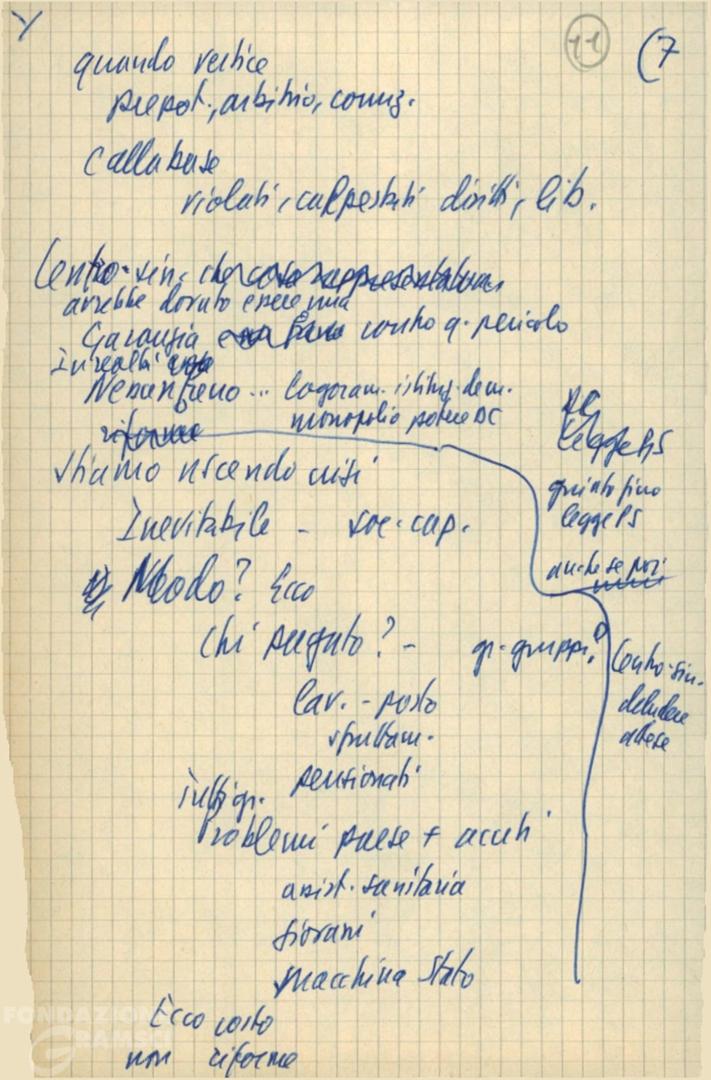 11 (7
quando vertice
prepot., arbitrio, corruz.
Calla base
violati, calpestati diritti, lib.
Centro-sin. che cosa rappresentato
avrebbe dovuto essere una
Garanzia contro q. pericolo
In realtà
Nessun freno... logoram. istituz. dem.
monopolio potere DC
riforme
Stiamo uscendo crisi
Inevitabile - soc. cap.
Modo? Ecco
Chi pagato? - gr. gruppi?
lav. - posto
sfruttam.
pensionati
Problemi paese + acuti
assist. sanitaria
giovani
macchina Stato
Ecco costo
non riforme
legge PS
legge PS
anche se poi
Centro-sin.
deludere
attese
FONDAZIONE
GRAMSCI